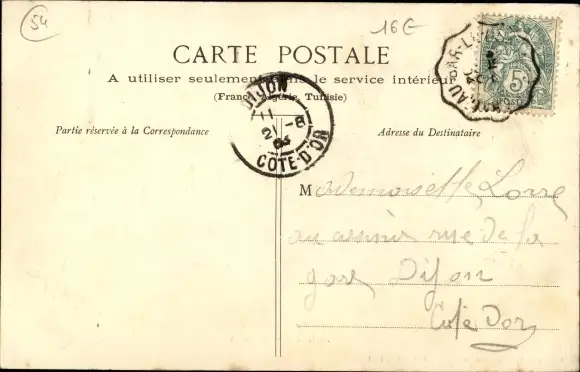 54
16€
CARTE POSTALE
A utiliser seulement dans le service intérieur
(France, Algérie, Tunisie)
Partie réservée à la Correspondance
Adresse du Destinataire
DIJON
11
21-8
04
COTE-D'OR
5c
POSTES
Mademoiselle Lorre
au casino rue de la
gare Dijon
Cote Dor